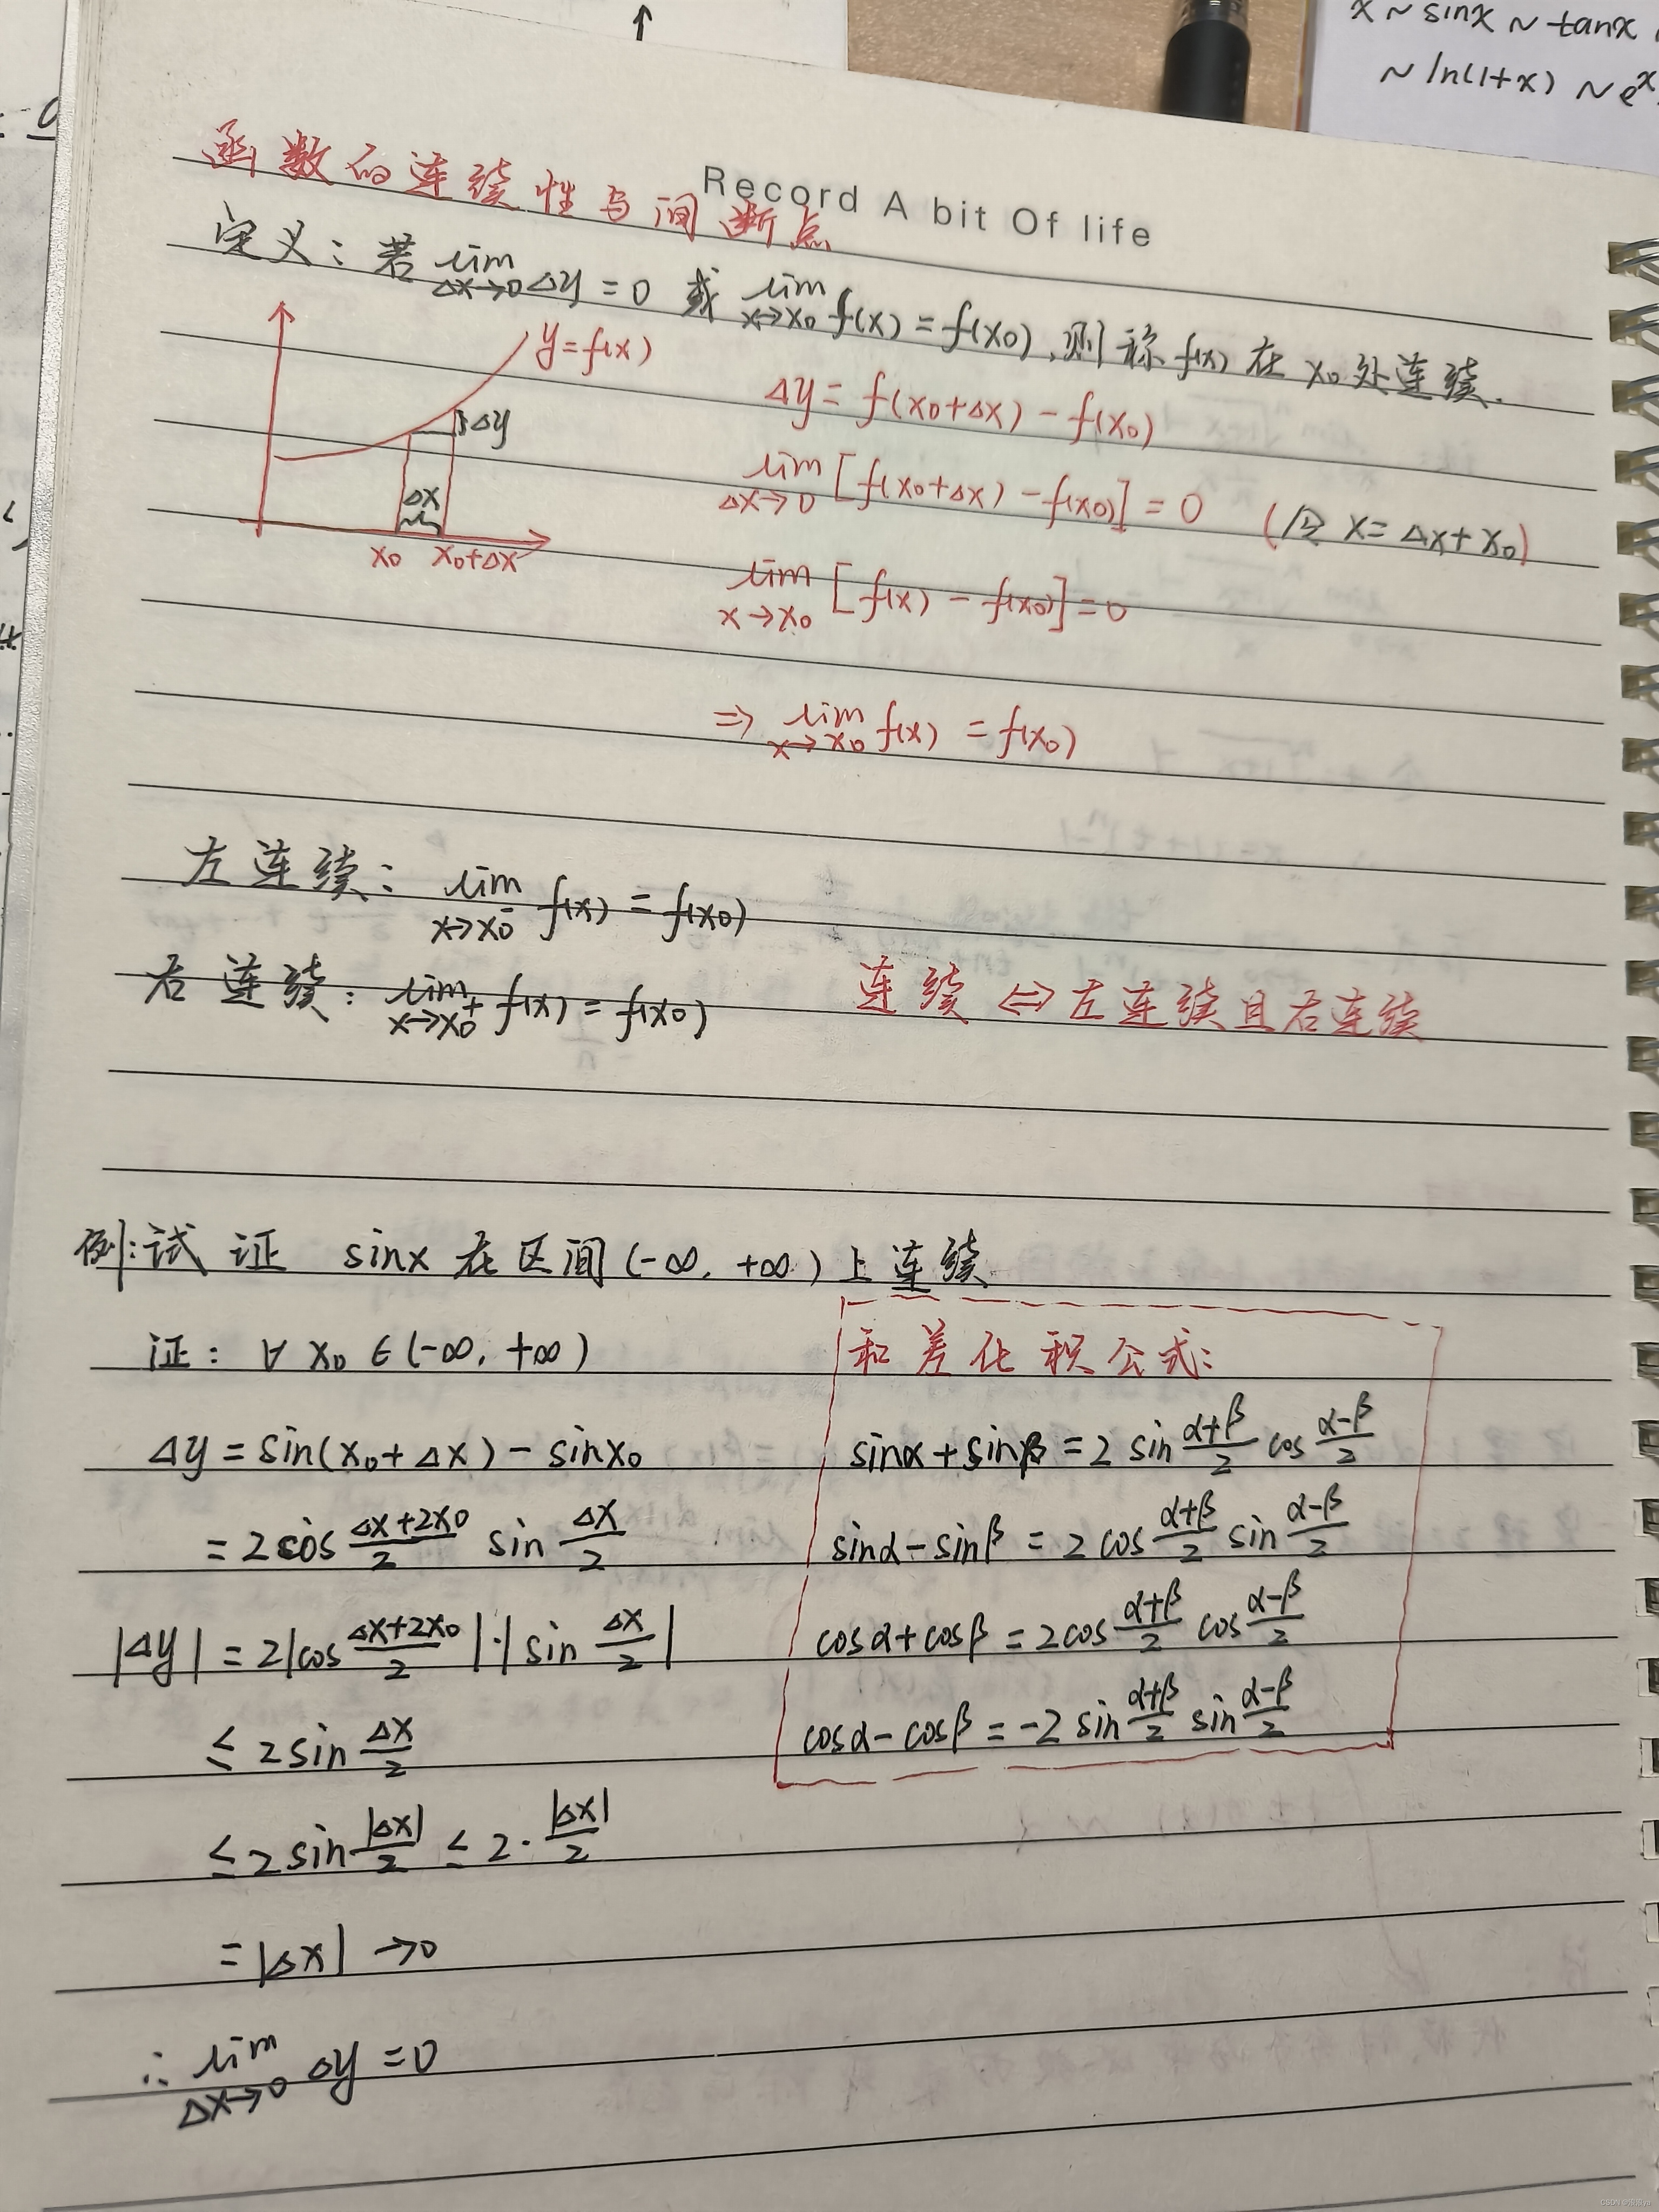 x ~ sinx ~ tanx
~ ln(1+x) ~ eˣ
Record A bit Of life
函数的连续性与间断点
定义：若 lim_{Δx→0} Δy = 0 或 lim_{x→x₀} f(x) = f(x₀), 则称 f(x) 在 x₀ 处连续.
y=f(x)
Δy
Δx
x₀ x₀+Δx
Δy = f(x₀+Δx) - f(x₀)
lim_{Δx→0} [f(x₀+Δx) - f(x₀)] = 0 (令 x = Δx + x₀)
lim_{x→x₀} [f(x) - f(x₀)] = 0
⇒ lim_{x→x₀} f(x) = f(x₀)
左连续：lim_{x→x₀⁻} f(x) = f(x₀)
右连续：lim_{x→x₀⁺} f(x) = f(x₀)
连续 ⇔ 左连续且右连续
例:试证 sinx 在区间 (-∞, +∞) 上连续
证：∀ x₀ ∈ (-∞, +∞)
Δy = sin(x₀+Δx) - sinx₀
= 2cos (Δx+2x₀)/2 sin Δx/2
|Δy| = 2|cos (Δx+2x₀)/2|·|sin Δx/2|
≤ 2sin Δx/2
≤ 2sin |Δx|/2 ≤ 2· |Δx|/2
= |Δx| → 0
∴ lim_{Δx→0} Δy = 0
和差化积公式:
sinα + sinβ = 2 sin (α+β)/2 cos (α-β)/2
sinα - sinβ = 2 cos (α+β)/2 sin (α-β)/2
cosα + cosβ = 2cos (α+β)/2 cos (α-β)/2
cosα - cosβ = -2 sin (α+β)/2 sin (α-β)/2